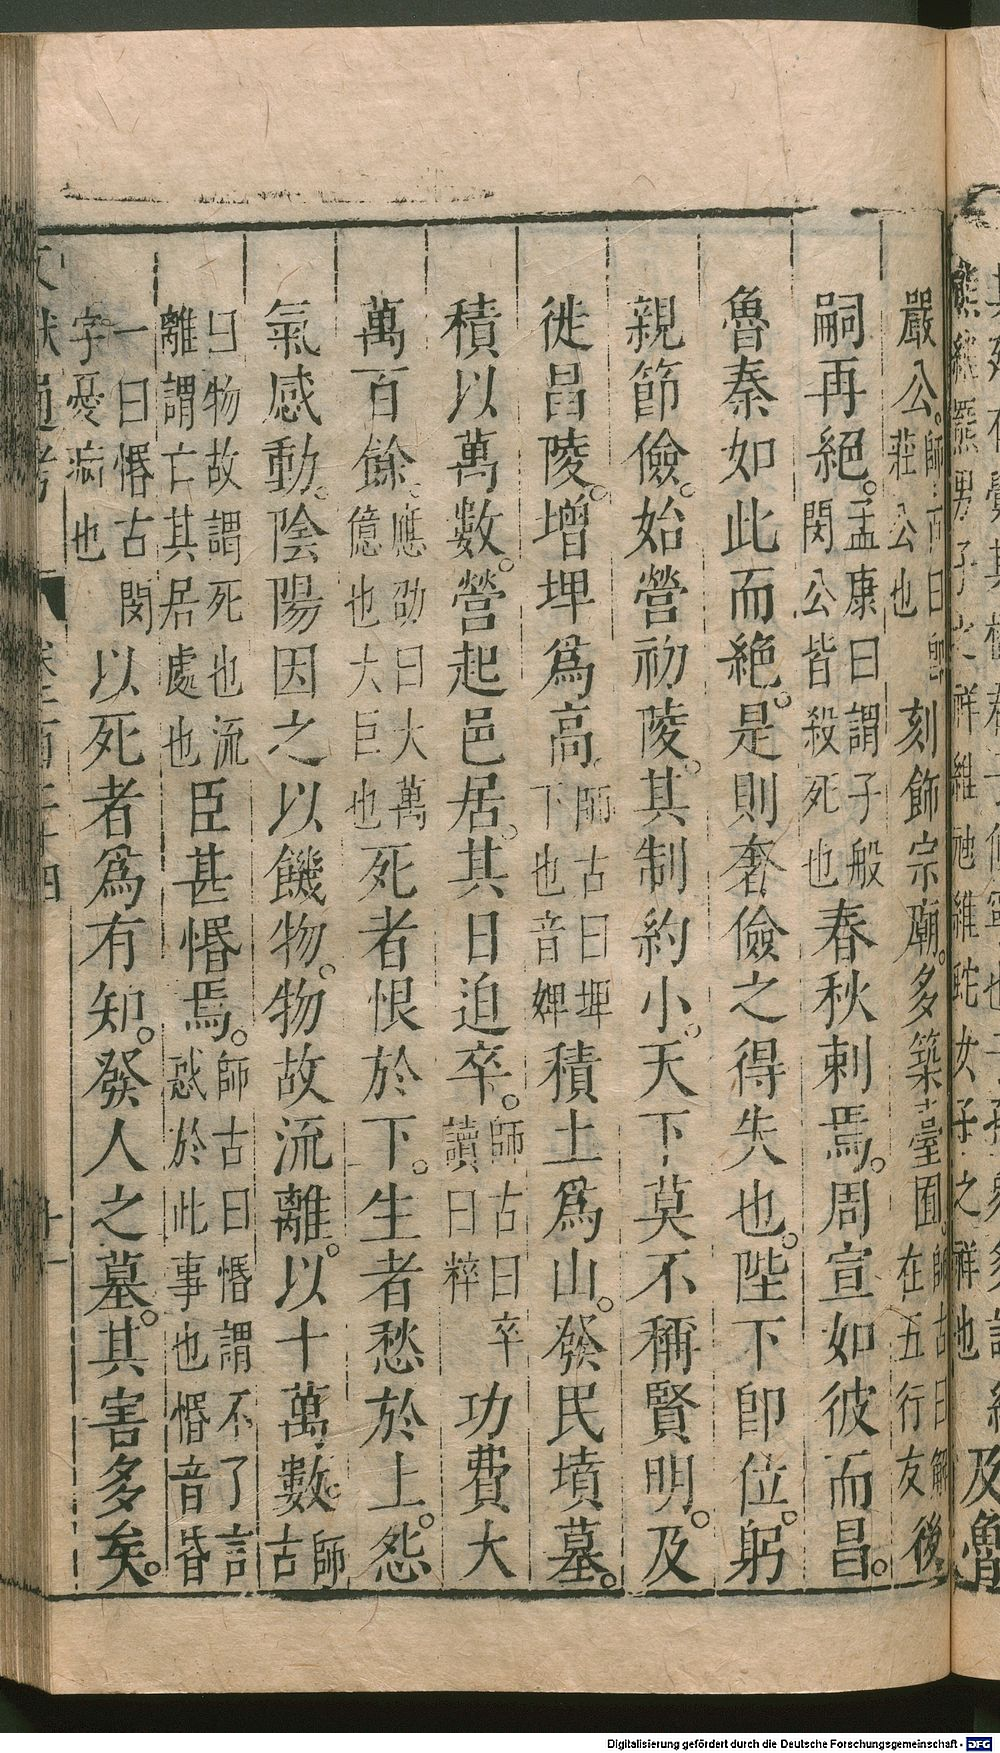 嚴公。師古曰即莊公也刻飾宗廟。多築臺囿。師古曰解在五行友後
嗣再絕。孟康曰謂子般閔公皆殺死也春秋刺焉。周宣如彼而昌。
魯秦如此而絕。是則奢儉之得失也。陛下即位。躬
親節儉。始營初陵。其制約小。天下莫不稱賢明。及
徙昌陵。增埤爲高。師古曰埤下也音婢積土爲山。發民墳墓。
積以萬數。營起邑居。其日迫卒。師古曰卒讀曰粹功費大
萬百餘。應劭曰大萬億也大巨也死者恨於下。生者愁於上。怨
氣感動。陰陽因之以饑物。物故流離。以十萬數。師古
曰物故謂死也流離謂亡其居處也臣甚惽焉。師古曰惽謂不了言惑於此事也惽音昏
一曰惽古閔字。憂病也以死者爲有知。發人之墓。其害多矣。
文獻通考 卷一百二十四 廿一
熊維羆男子之祥維虺維蛇女子之祥也
及魯
Digitalisierung gefördert durch die Deutsche Forschungsgemeinschaft - DFG